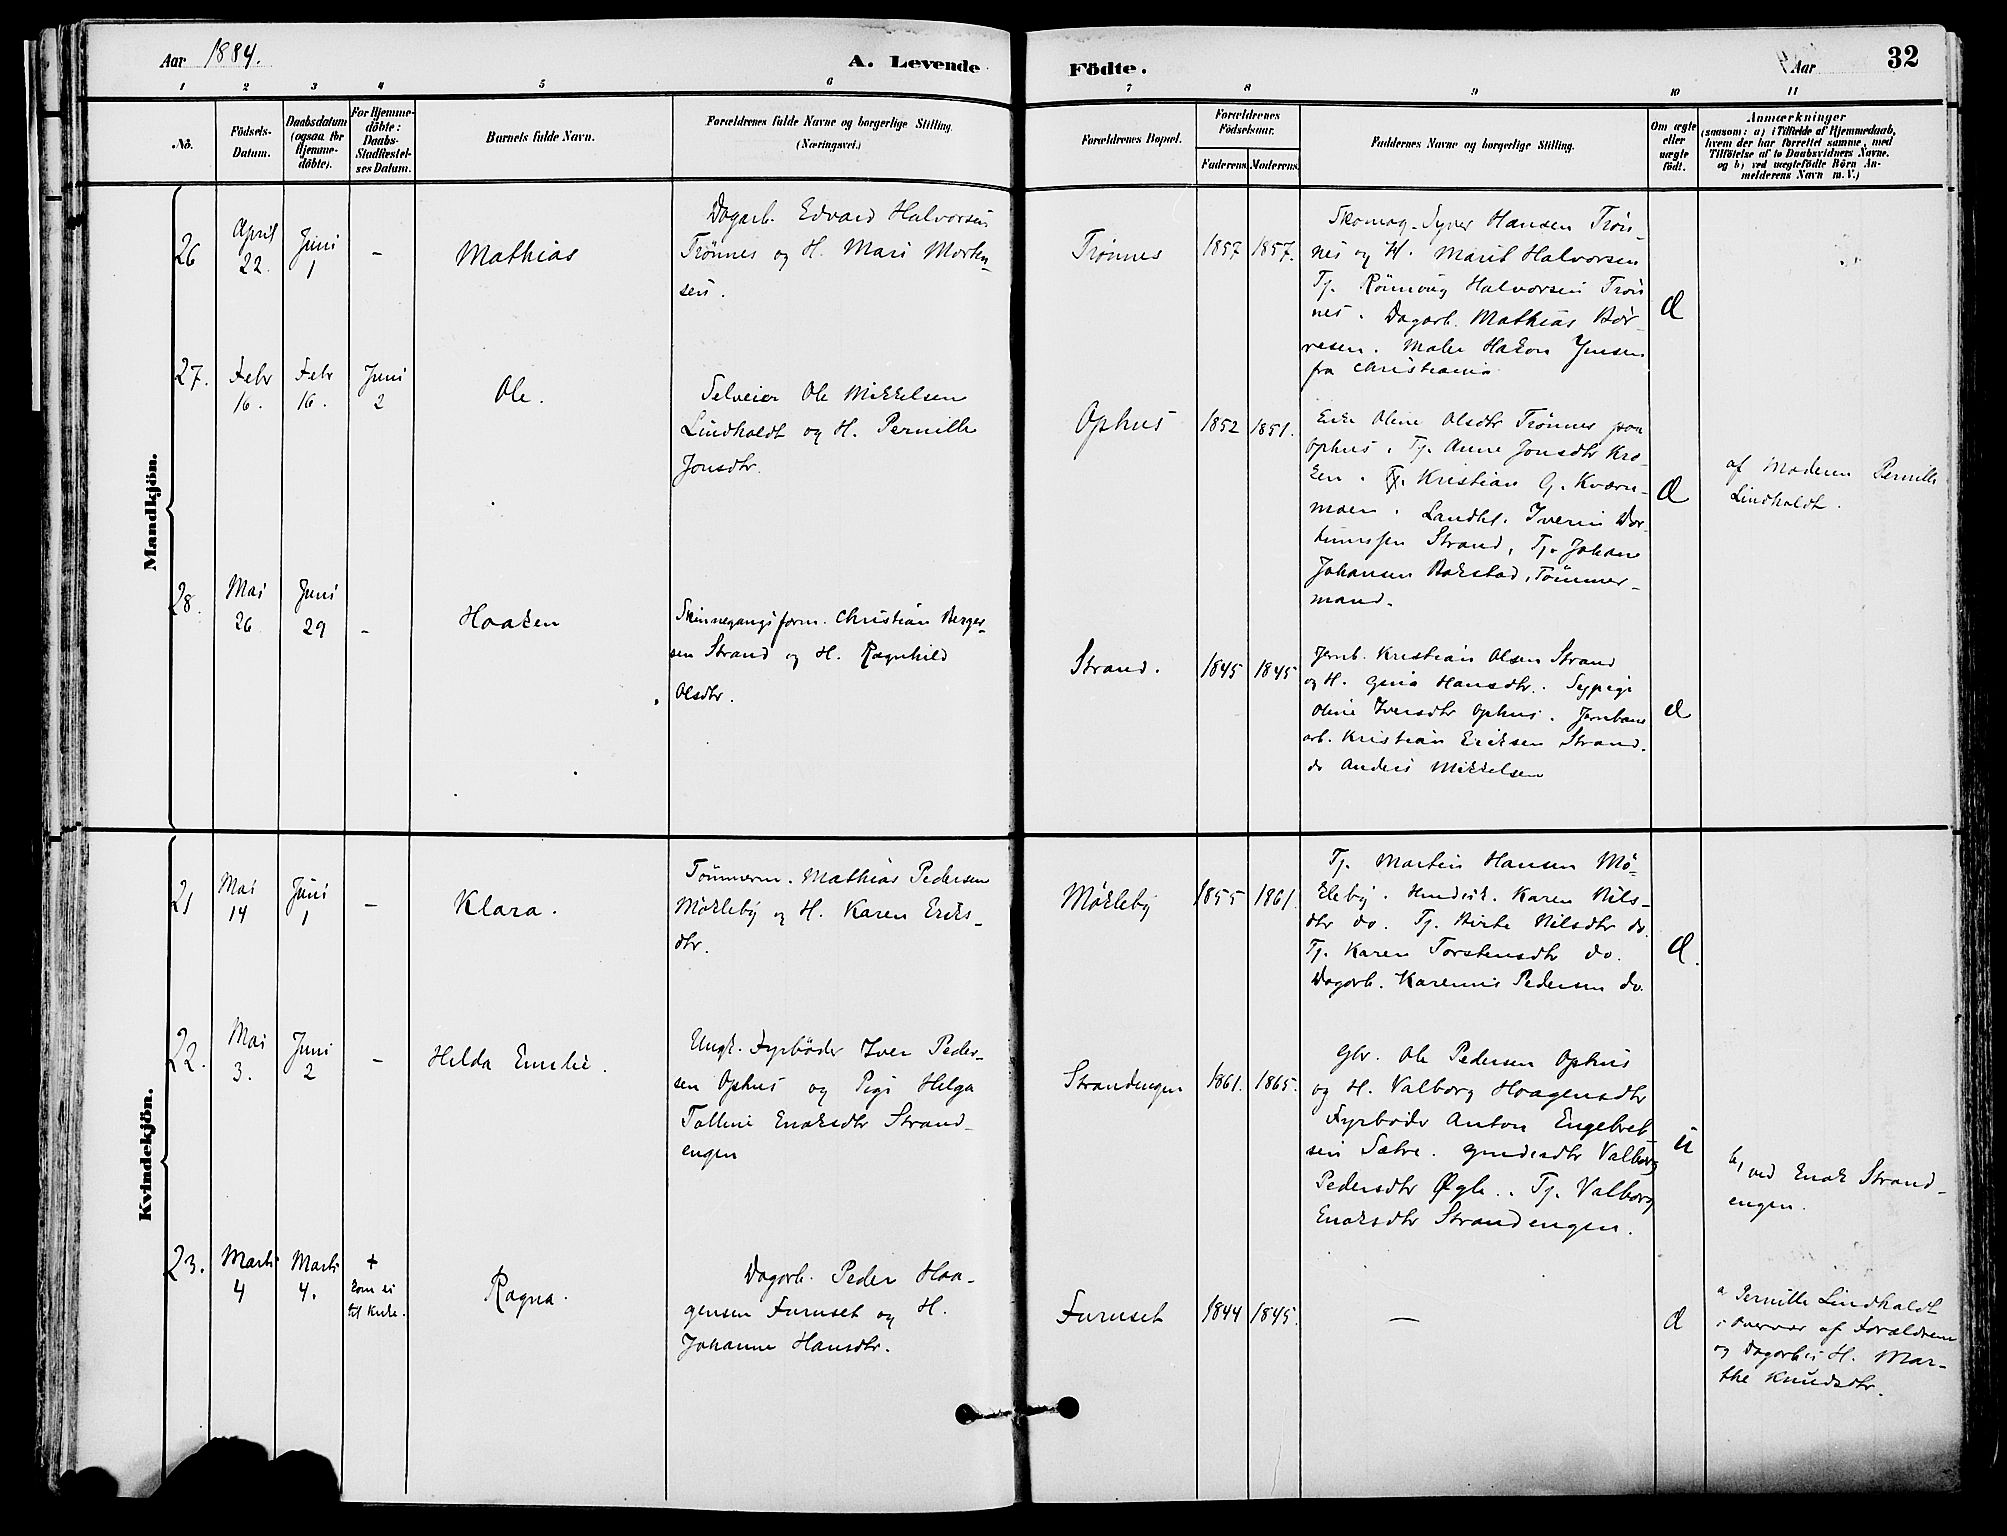 Aar 1884.
A. Levende
Födte.
Aar
32
1 2 3 4 5 6 7 8 9 10 11
No.
Födsels-
Datum.
Daabsdatum
(ogsaa for
Hjemme-
döbte).
For Hjemme-
döbte:
Daabs-
Stadfæstel-
ses Datum.
Barnets fulde Navn.
Forældrenes fulde Navne og borgerlige Stilling.
(Næringsvei.)
Forældrenes Bopæl.
Forældrenes
Födselsaar.
Faderens.
Moderens.
Faddernes Navne og borgerlige Stilling.
Om ægte
eller
uægte
födt.
Anmærkninger
(saasom: a) i Tilfælde af Hjemmedaab,
hvem der har forrettet samme, med
Tilföielse af to Daabsvidners Navne.
og b) ved uægtefödte Börn An-
melderens Navn m. V.)
Mandkjön.
26
April
22.
Juni
1
-
Mathias
Dagarb. Edvard Halvorsen
Trönnes og H. Mari Morten-
sen.
Trönnes
1857
1857.
Skomag. Syver Hansen Trön-
nes og H. Marit Halvorsen
Tj. Rönnoug Halvorsen Trön
nes. Dagarb. Mathias Bör-
resen. Maler Hakon Jensen
fra Christiania
d
27.
Febr
16.
Febr
16.
Juni
2
Ole.
Selveier Ole Mikkelsen
Lindholdt og H. Pernille
Jonsdtr.
Ophus
1852
1851.
Enke Oline Olsdtr Trönnes paa
Ophus. Tj. Anne Jonsdtr Kro-
ken. Tj. Kristian G. Kværn-
moen. Landhl. Iverin
Strand, Tj. Johan
Johansen Bakstad, Tömmer-
mand.
d
af Moderen Pernille
Lindholdt.
28.
Mai
26
Juni
29
-
Haaken
Skinnegangsform. Christian Berger-
sen Strand og H. Ragnhild
Olsdtr.
Strand.
1845
1845
Jernb. Kristian Olsen Strand
og H. Gina Hansdtr. Sypige
Oline Iversdtr Ophus. Jernbane
arb. Kristian Eriksen Strand.
do Anders Mikkelsen
d
Kvindekjön.
21
Mai
14
Juni
1
-
Klara.
Tömmerm. Mathias Pedersen
Mökleby og H. Karen Eriks-
dtr.
Mökleby
1855
1861.
Tj. Martin Hansen Mö-
kleby. Karen Nils-
dtr do. Tj. Birte Nilsdtr do.
Tj. Karen Torstensdtr do.
Dagarb. Karenus Pedersen do.
d.
22.
Mai
3.
Juni
2
-
Hilda Emilie.
Ungk. Fyrböder Iver Peder-
sen Ophus og Pige Helga
Talline Enoksdtr Strand-
engen
Strandengen
1861.
1865.
Gbr. Ole Pedersen Ophus
og H. Valborg Haagensdtr
Fyrböder Anton Engebret-
sen Sætre. Gmdsdtr Valborg
Pedersdtr Øgle. Tj. Valborg
Enoksdtr Strandengen.
u
b, ved Enok Strand-
engen.
23.
Marts
4
Marts
4.
+
kom ei
til Kirke.
Ragna.
Dagarb. Peder Haa-
gensen Furuset og H.
Johanne Hansdtr.
Furuset
1844
1845.
-
d
a Pernille Lindholdt
i Overvær af Forældrene
og Dagarbs H. Mar-
the Knudsdtr.